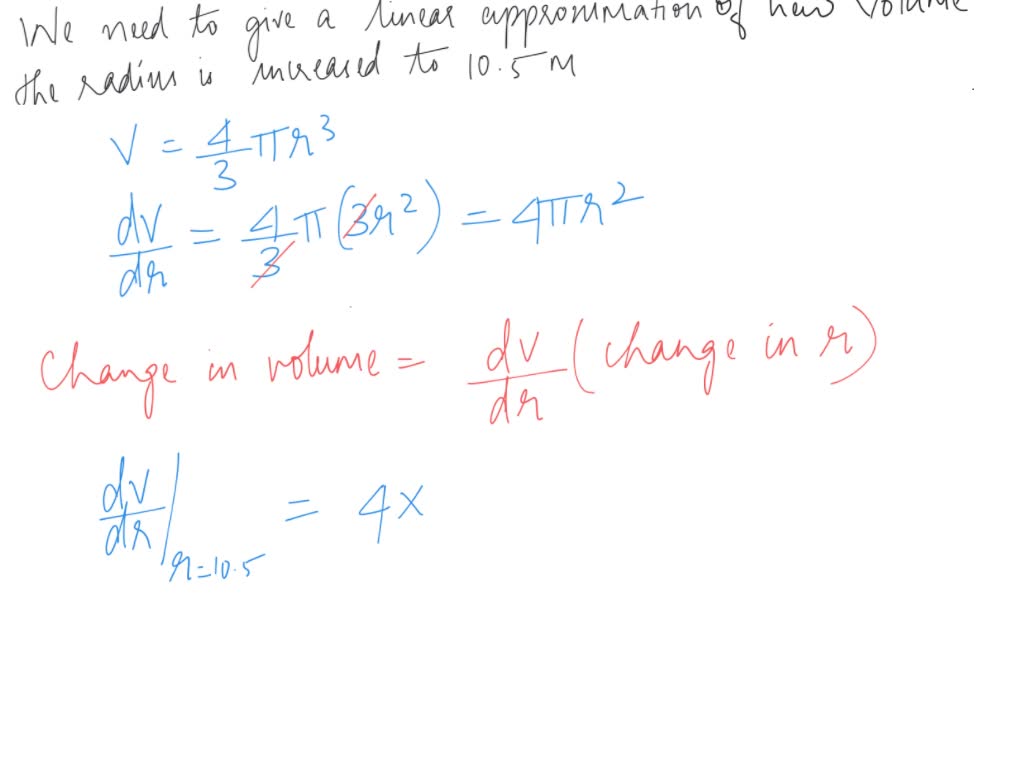 We need to give a linear approximation of new volume
the radius is increased to 10.5 M
V = 4/3 πr³
dv/dr = 4/3 π(3r²) = 4πr²
Change in volume = dv/dr (change in r)
dv/dr | r=10.5 = 4x